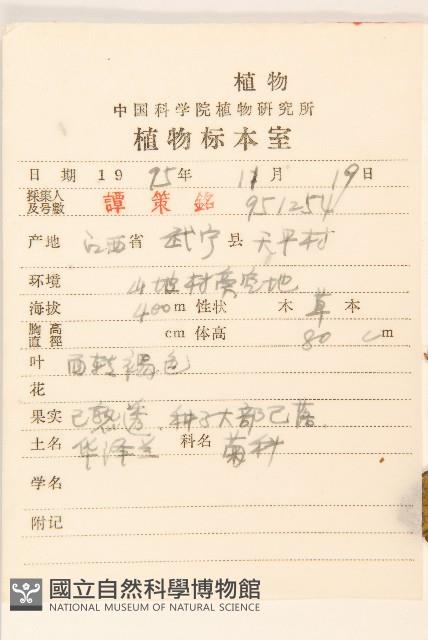 植物
中国科学院植物研究所
植物标本室
日期 19 95年 11月 19日
採集人及号數 譚策銘 951254
产地 江西省 武宁县 天平村
环境 山坡村旁空地
海拔 400m 性状 木 草 本
胸高直徑 cm 体高 80 cm
叶 褐色
花
果实 已熟 种子大部已落
土名 华泽兰 科名 菊科
学名
附记
國立自然科學博物館
NATIONAL MUSEUM OF NATURAL SCIENCE